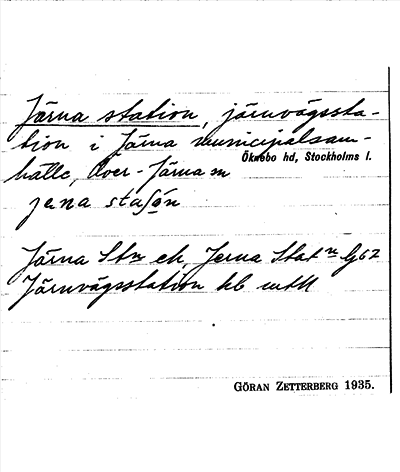 Järna station, järnvägssta-
tion i Järna municipalsam-
hälle, Över-Järna sn
Öknebo hd, Stockholms l.
jɛna staʃón
Järna Stn ek, Jerna Statn Gj62
Järnvägsstation hb mtll
GÖRAN ZETTERBERG 1935.